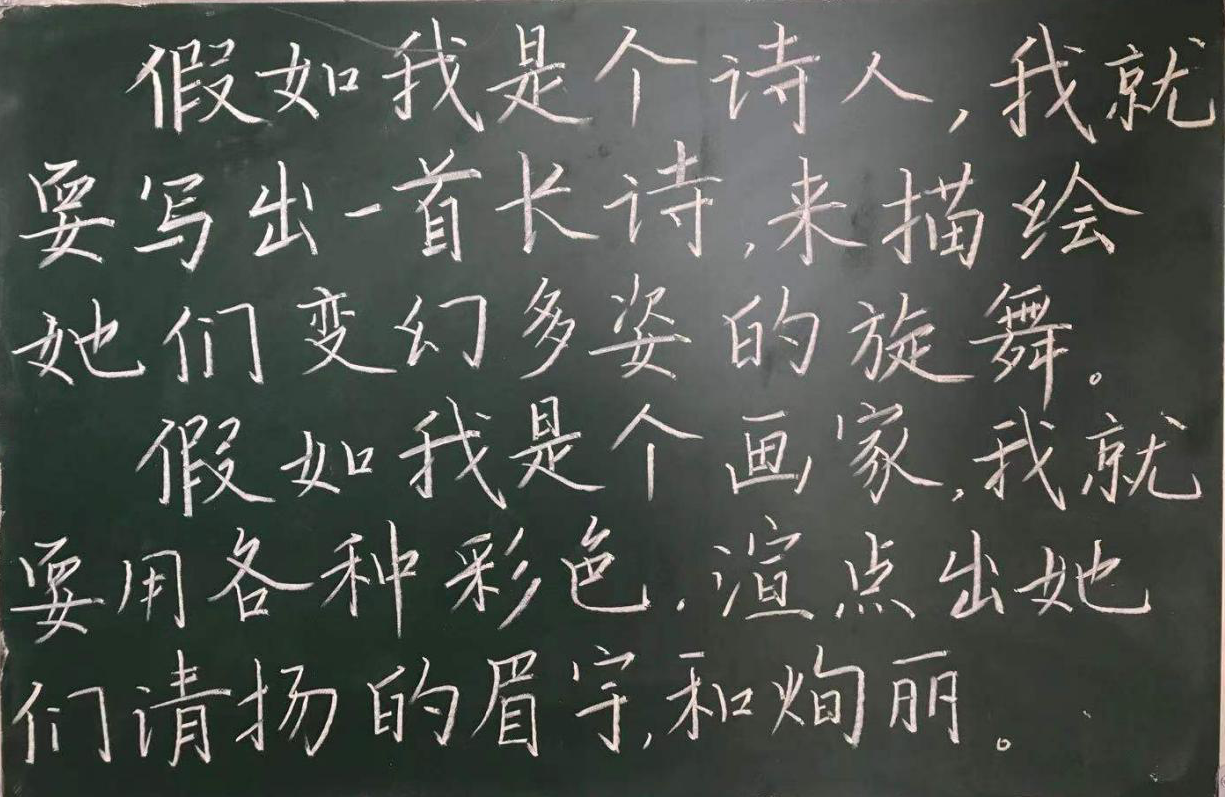 假如我是个诗人，我就
要写出一首长诗，来描绘
她们变幻多姿的旋舞。
假如我是个画家，我就
要用各种彩色，渲点出她
们请扬的眉宇，和炯丽。